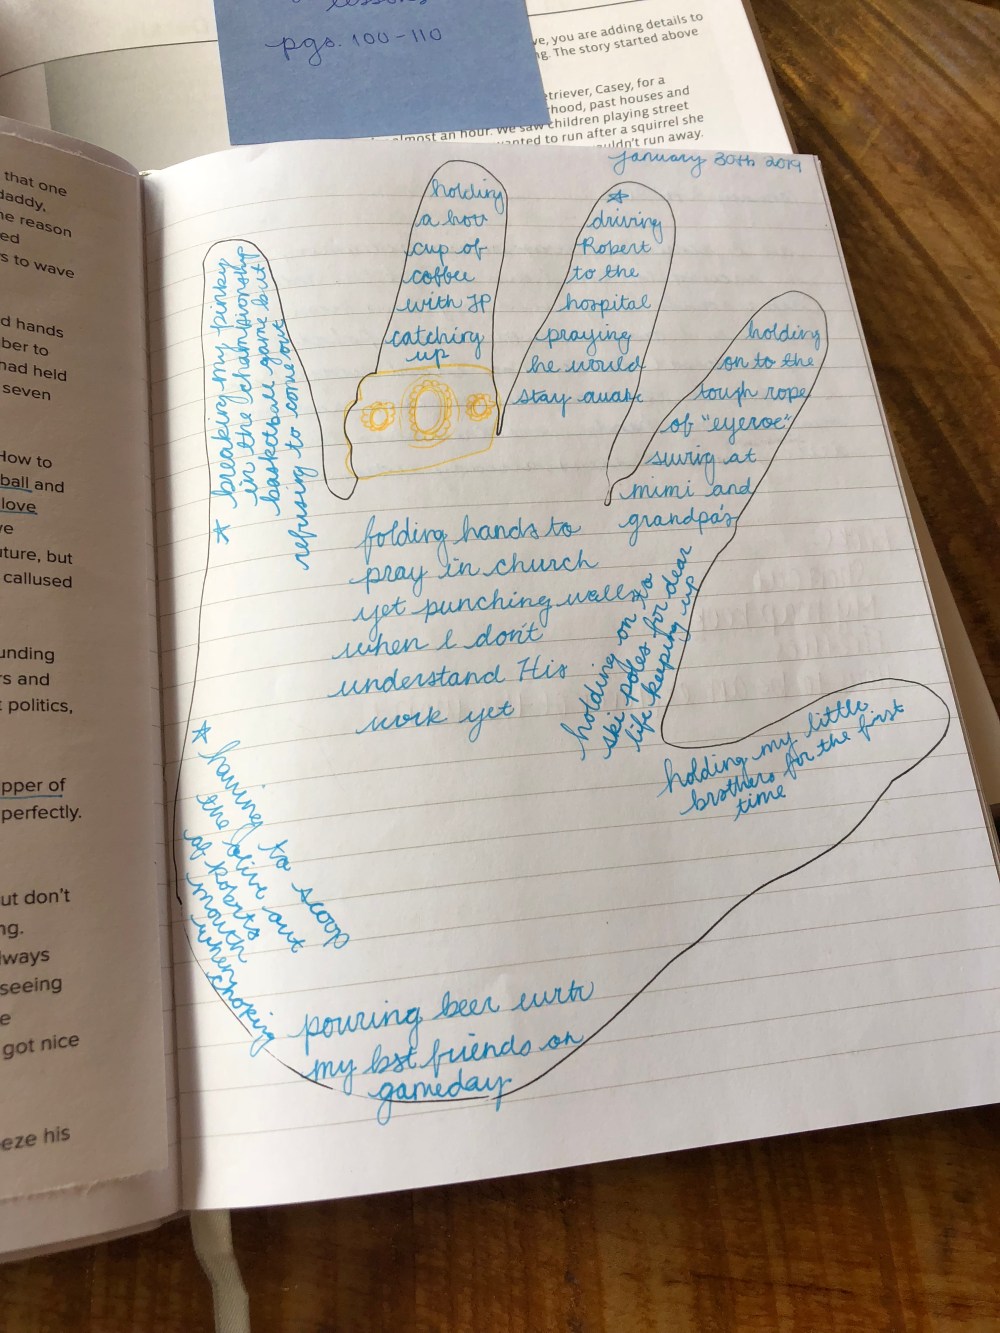 lessons
pgs. 100-110
ve, you are adding details to
g. The story started above
etriever, Casey, for a
rhood, past houses and
almost an hour. We saw children playing street
anted to run after a squirrel she
uldn't run away.
that one
daddy,
ne reason
ed
s to wave
d hands
ber to
had held
seven
How to
ball and
love
ve
uture, but
callused
unding
rs and
t politics,
pper of
perfectly.
ut don't
ng.
lways
seeing
e
got nice
eze his
January 30th 2019
breaking my pinky
in the championship
basketball game but
refusing to come out
holding
a hot
cup of
coffee
with JP
catching
up
driving
Robert
to the
hospital
praying
he would
stay awake
holding
on to the
tough rope
of "eyeroe"
swing at
mimi and
grandpa's
folding hands to
pray in church
yet punching walls
when I don't
understand His
work yet
holding on to
ski poles for dear
life keeping up
holding my little
brothers for the first
time
having to scoop
the olive out
of Roberts
mouth
when choking
pouring beer with
my bst friends on
gameday